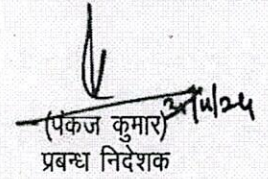 (पंकज कुमार)
प्रबन्ध निदेशक